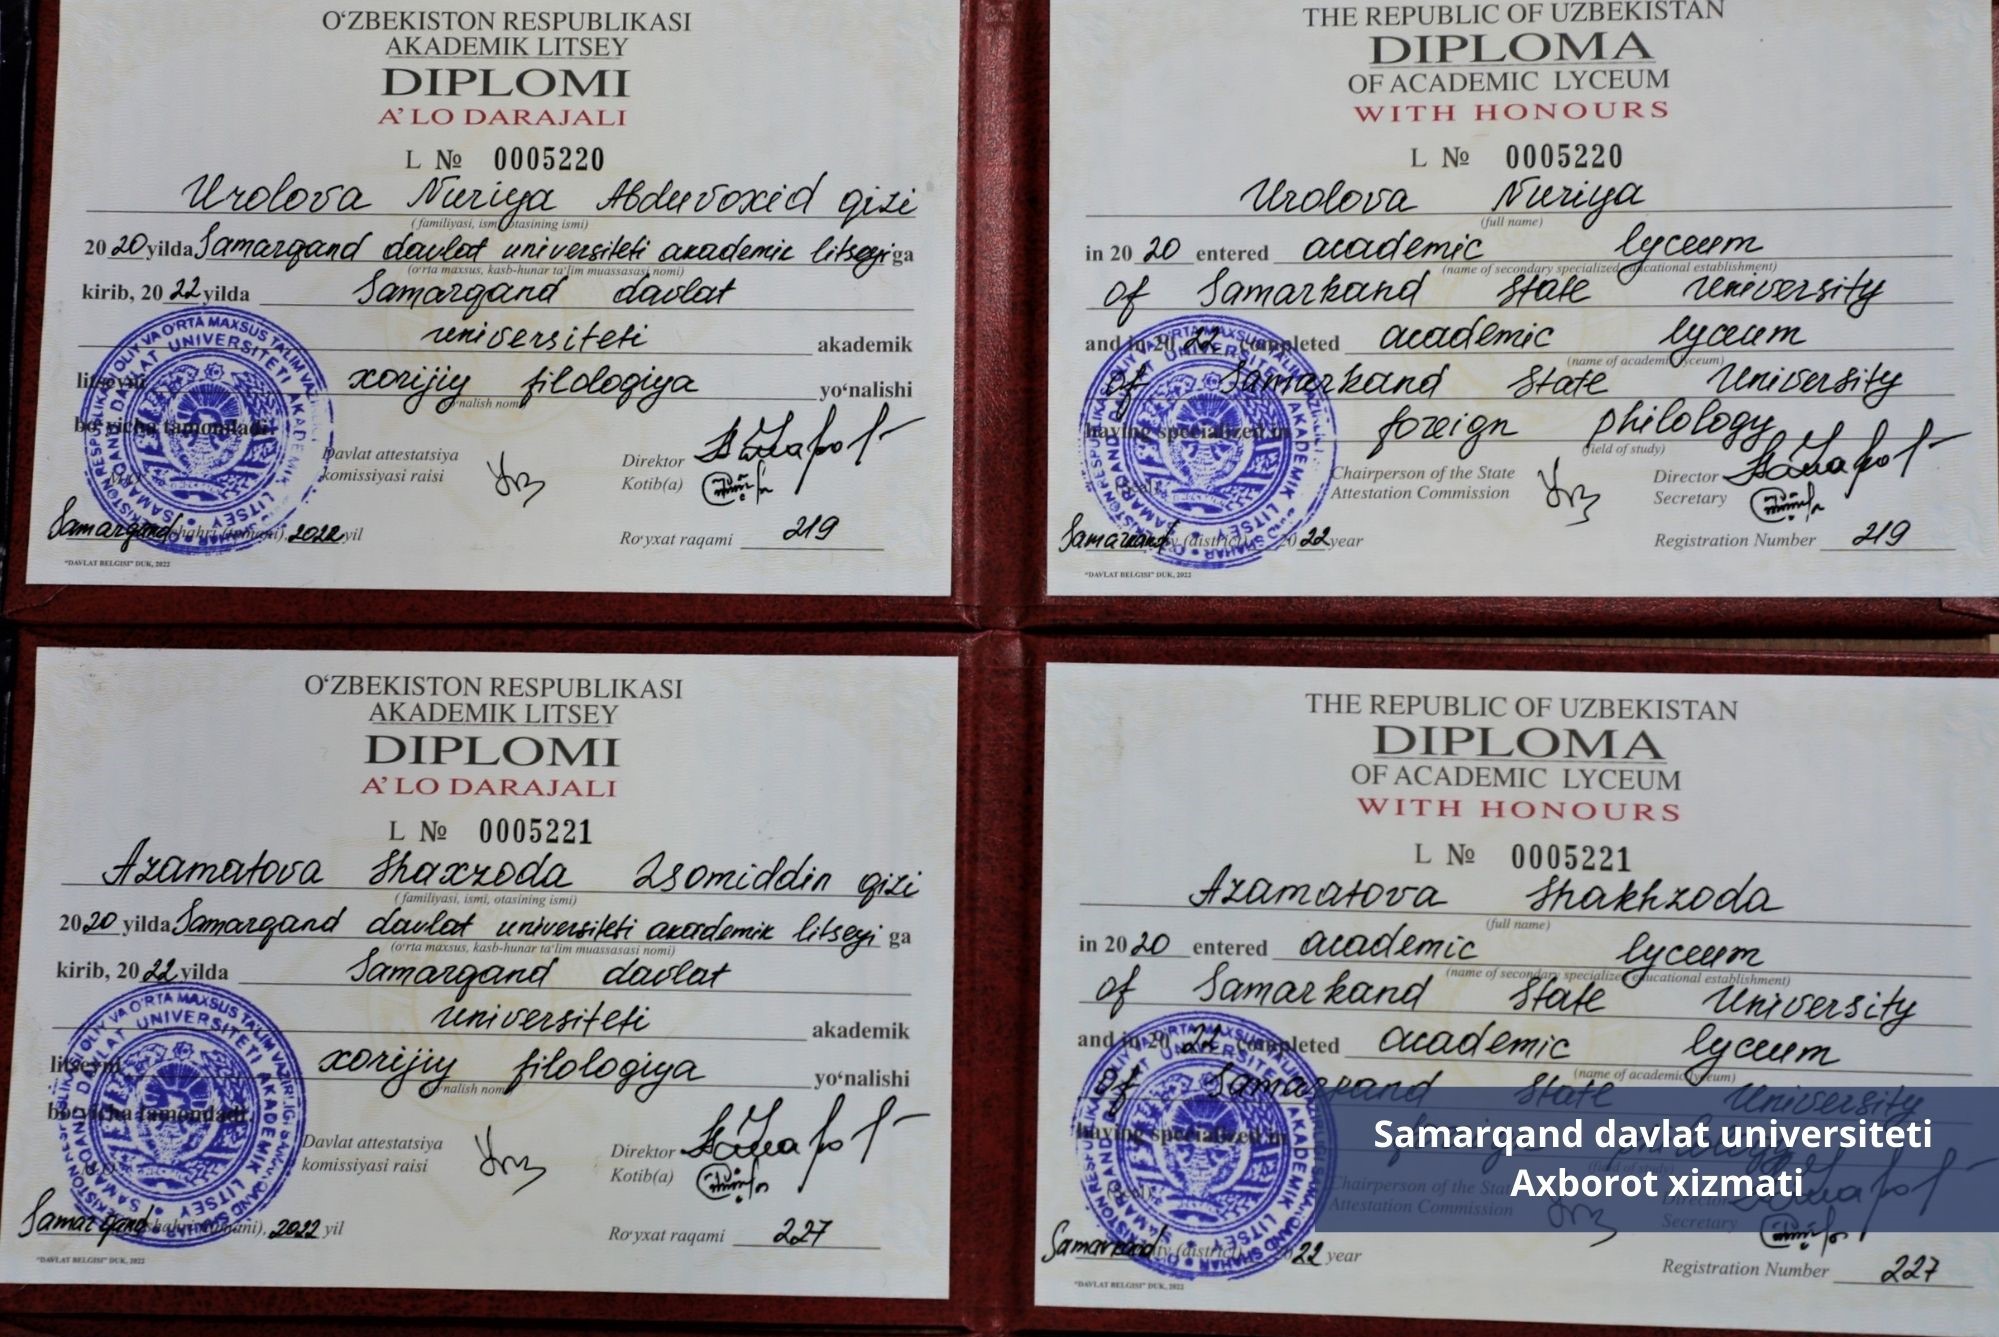 O‘ZBEKISTON RESPUBLIKASI
AKADEMIK LITSEY
DIPLOMI
A’LO DARAJALI
L № 0005220
Urolova Nuriya Abduvoxid qizi
(familiyasi, ismi, otasining ismi)
2020 yilda Samarqand davlat universiteti akademik litseyi ga
(o‘rta maxsus, kasb-hunar ta’lim muassasasi nomi)
kirib, 2022 yilda Samarqand davlat
universiteti akademik
litseyni xorijiy filologiya yo‘nalishi
bo‘yicha tamomladi.
Davlat attestatsiya
komissiyasi raisi
Direktor
Kotib(a)
Samarqand shahri (tumani), 2022 yil
Ro‘yxat raqami 219
"DAVLAT BELGISI" DUK, 2022
THE REPUBLIC OF UZBEKISTAN
DIPLOMA
OF ACADEMIC LYCEUM
WITH HONOURS
L № 0005220
Urolova Nuriya
(full name)
in 2020 entered academic lyceum
(name of secondary specialized educational establishment)
of Samarkand State University
and in 2022 completed academic lyceum
(name of academic lyceum)
of Samarkand State University
having specialized in foreign philology
(field of study)
Chairperson of the State
Attestation Commission
Director
Secretary
Samarkand city (district) 2022 year
Registration Number 219
"DAVLAT BELGISI" DUK, 2022
O‘ZBEKISTON RESPUBLIKASI
AKADEMIK LITSEY
DIPLOMI
A’LO DARAJALI
L № 0005221
Azamatova Shaxzoda Isomiddin qizi
(familiyasi, ismi, otasining ismi)
2020 yilda Samarqand davlat universiteti akademik litseyi ga
(o‘rta maxsus, kasb-hunar ta’lim muassasasi nomi)
kirib, 2022 yilda Samarqand davlat
universiteti akademik
litseyni xorijiy filologiya yo‘nalishi
bo‘yicha tamomladi.
Davlat attestatsiya
komissiyasi raisi
Direktor
Kotib(a)
Samarqand shahri (tumani), 2022 yil
Ro‘yxat raqami 227
"DAVLAT BELGISI" DUK, 2022
THE REPUBLIC OF UZBEKISTAN
DIPLOMA
OF ACADEMIC LYCEUM
WITH HONOURS
L № 0005221
Azamatova Shakhzoda
(full name)
in 2020 entered academic lyceum
(name of secondary specialized educational establishment)
of Samarkand State University
and in 2022 completed academic lyceum
(name of academic lyceum)
of Samarkand State University
having specialized in foreign philology
(field of study)
Chairperson of the State
Attestation Commission
Director
Secretary
Samarkand city (district) 2022 year
Registration Number 227
"DAVLAT BELGISI" DUK, 2022
Samarqand davlat universiteti
Axborot xizmati